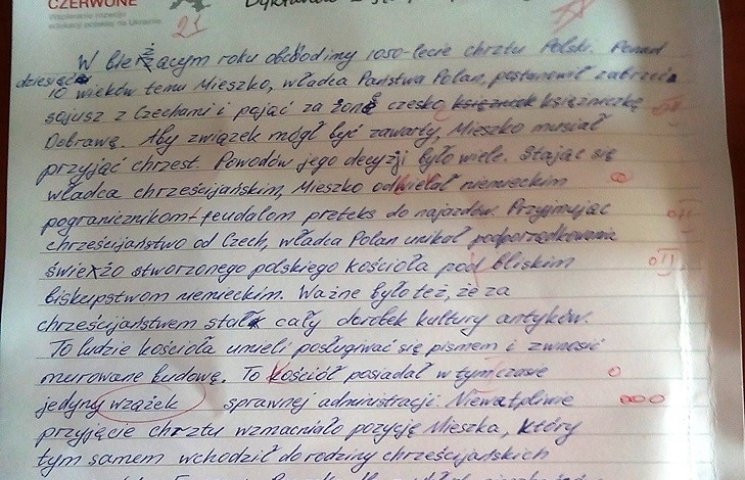 CZERWONE
Wspieranie rozwoju
edukacji polskiej na Ukrainie
21
W bieżącym roku obchodimy 1050-lecie chrztu Polski. Ponad
dziesięć
10 wieków temu Mieszko, władca Państwa Polan, postanowił zabrzeć
sojusz z Czechami i pojąć za żonę czesko księżniczkę
Dobrawę. Aby związek mógł być zawarty, Mieszko musiał
przyjąć chrzest. Powodów jego decyzji było wiele. Stając się
władca chrześcijańskim, Mieszko odbielał niemieckim
pogranicznikom-feudalom preteks do najazdów. Przyjmując
chrześcijaństwo od Czech, władca Polan unikał podporządkowania
świeżo stworzonego polskiego Kościoła pod bliskim
biskupstwom niemieckim. Ważne było też, że za
chrześcijaństwem stał cały dorobek kultury antyków.
To ludzie kościoła umieli posługiwać się pismem i zwnosić
murowane budowę. To Kościół posiadał w tym czasie
jedyny wzążek sprawnej administracji. Niewatpliwie
przyjęcie chrztu wzmacniało pozycję Mieszka, który
tym samem wchodził do rodziny chrześcijańskich